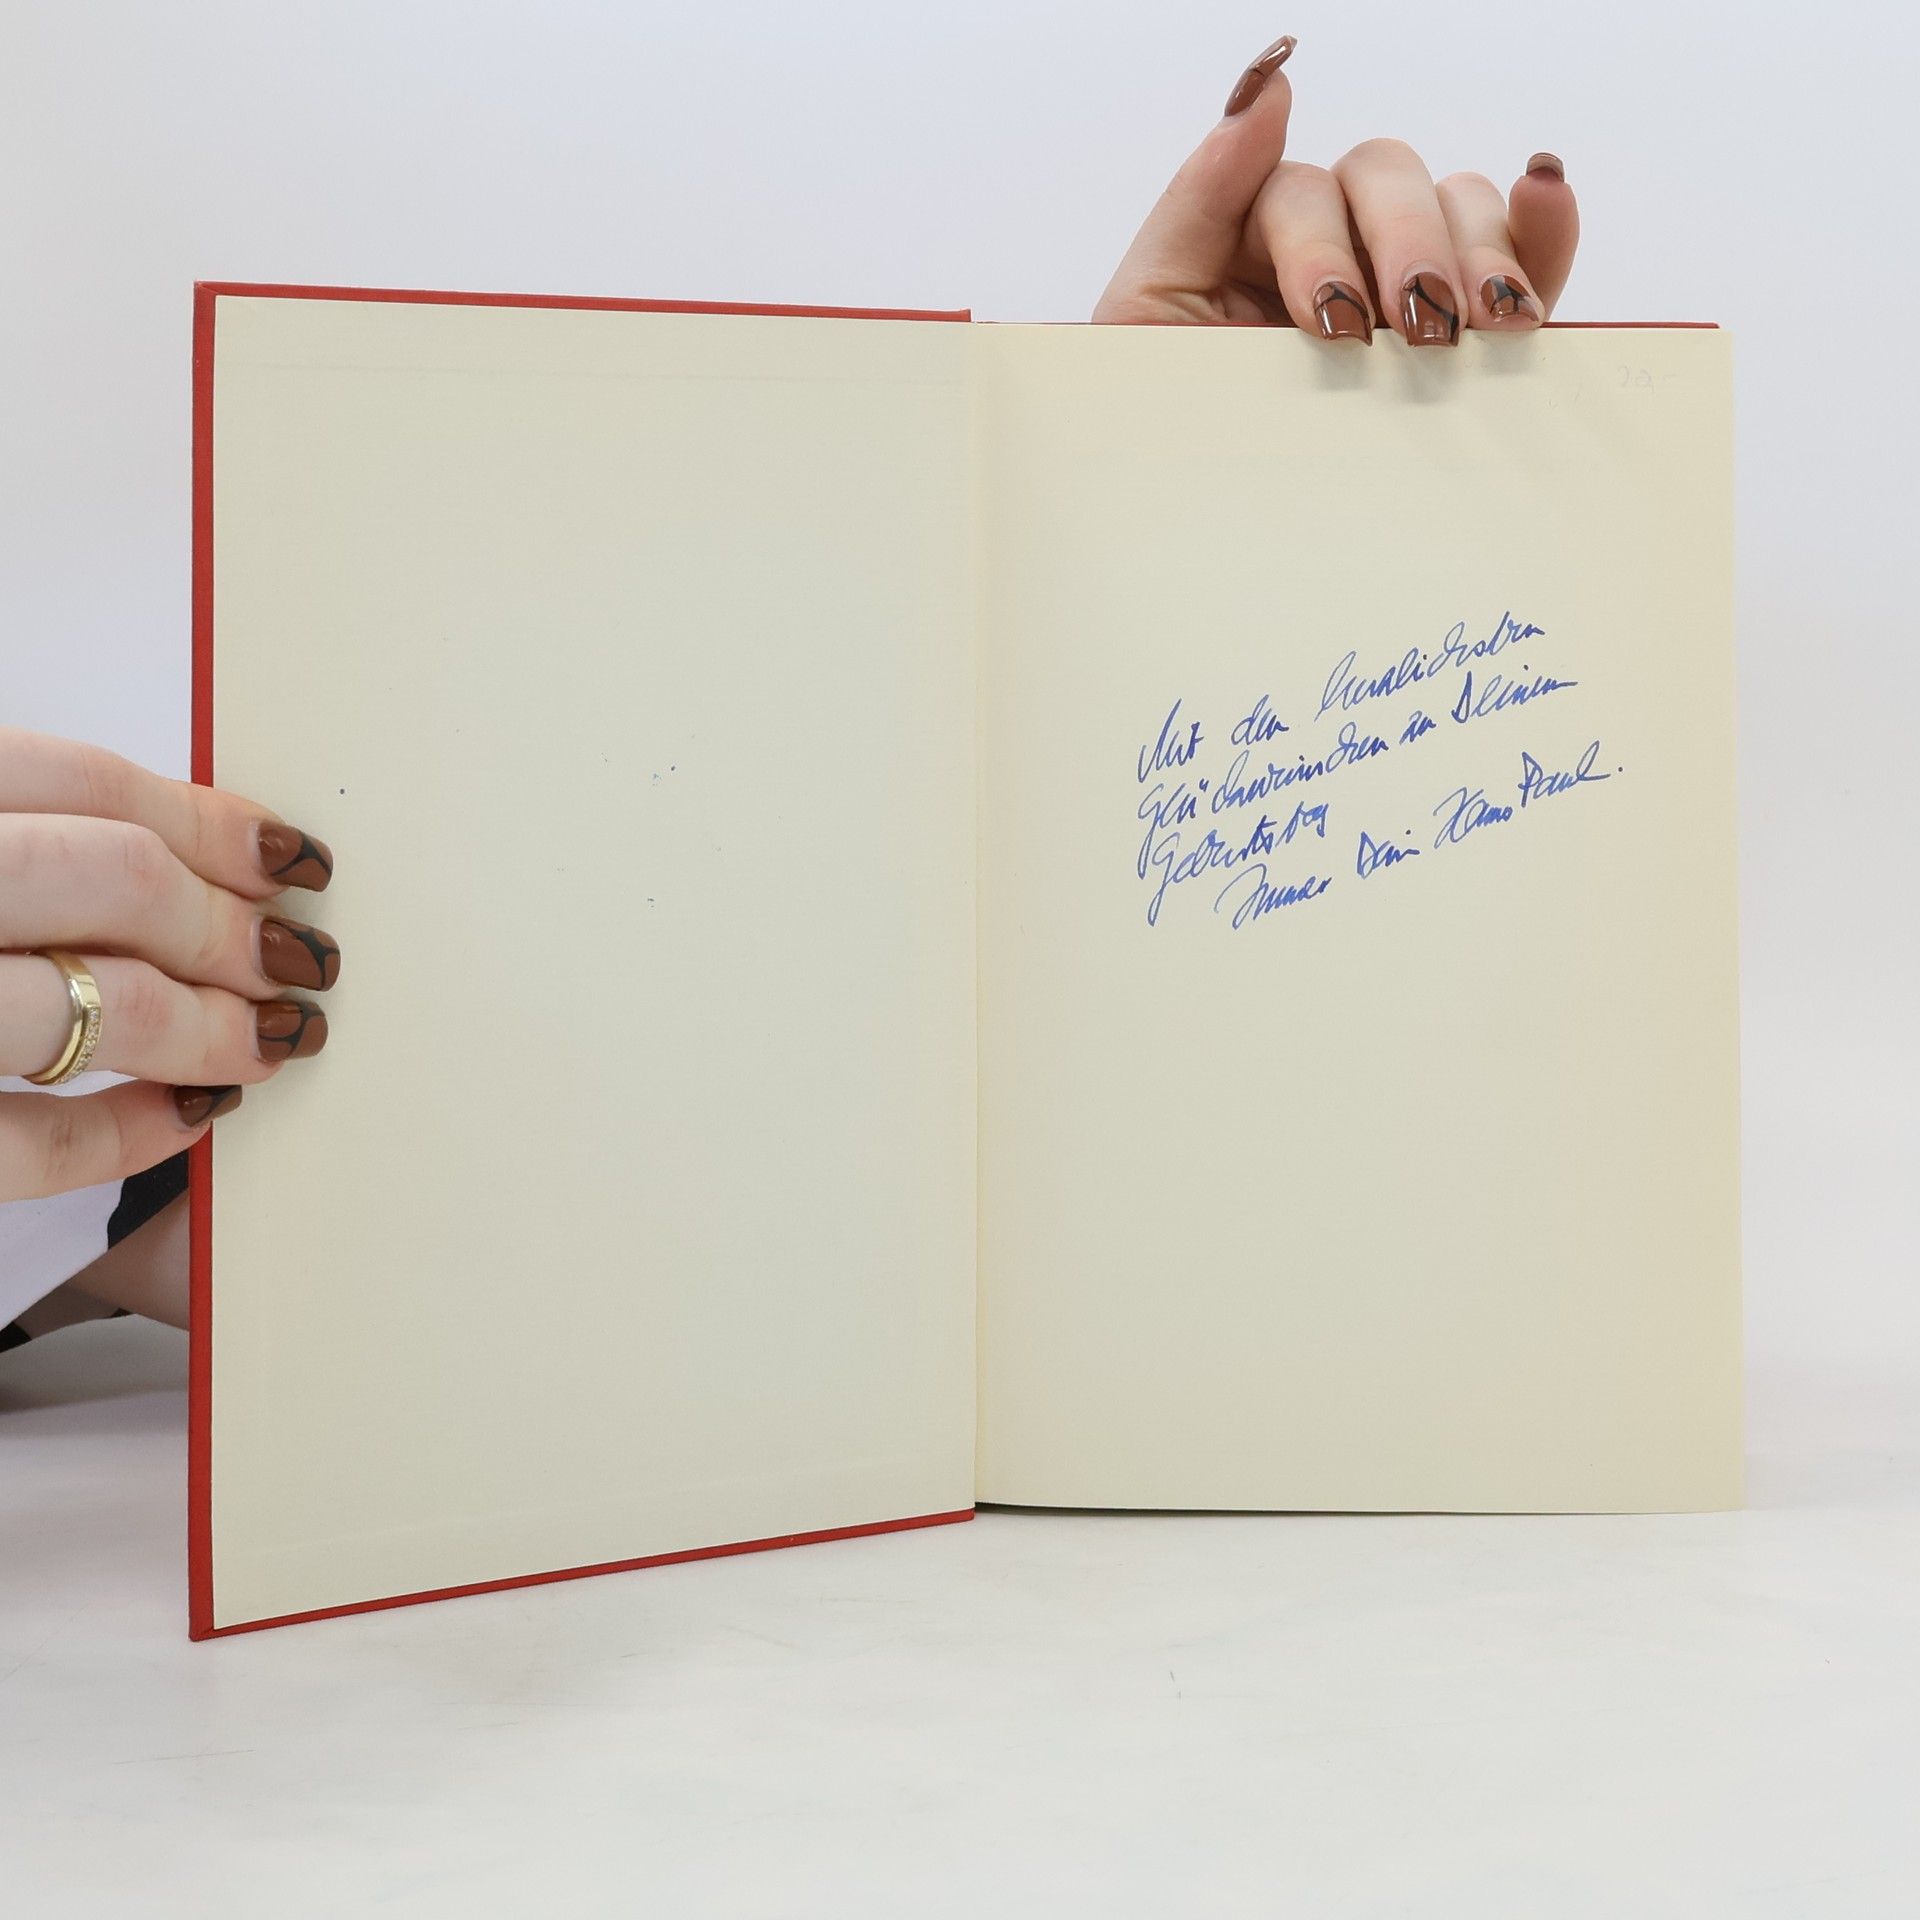 22,-
Mit den herzlichsten
Glückwünschen zu Deinem
Geburtstag
Immer Dein Hans Paul.